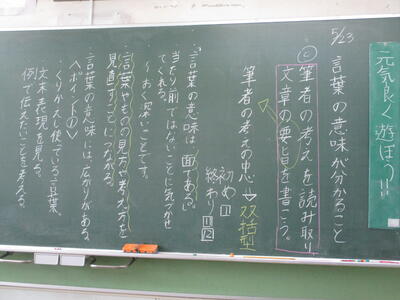 元気良く遊ぼう!!
5/23
言葉の意味が分かること
め
筆者の考えを読み取り
文章の要旨を書こう。
筆者の考えの中心⇒双括型
初め 1
終わり 11 12
・「言葉の意味は「面」である。」
当たり前ではないことに気づかせ
てくれる。
〜おく深いことです。
・言葉やものの見方や考え方を
見直すことにつながる。
・言葉の意味には、広がりがある。
〈ポイント〉
・くりかえし使っている言葉。
・文末表現を見る。
・例で伝えたいことを考える。